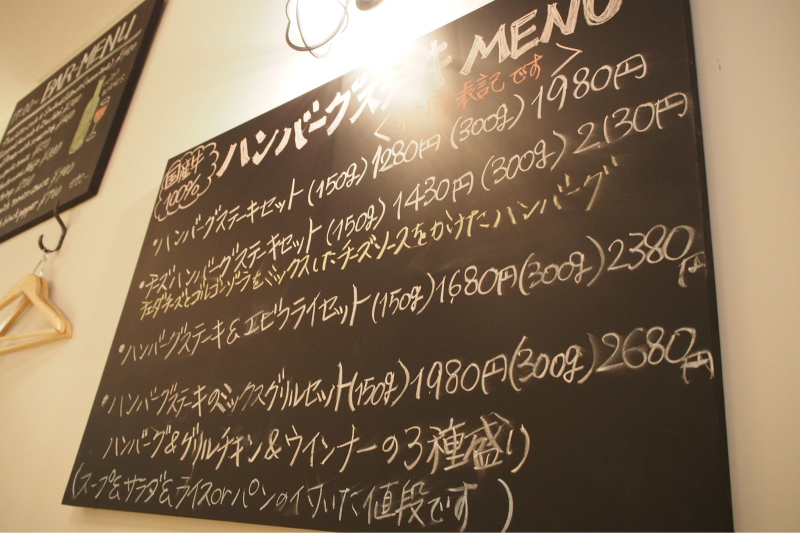 BAR-MENU
国産牛
100%
ハンバーグステーキ MENU
表記です>
・ハンバーグステーキセット (150g) 1280円 (300g) 1980円
・チーズハンバーグステーキセット (150g) 1430円 (300g) 2130円
チェダチーズとゴルゴンゾラをミックスしたチーズソースをかけたハンバーグ
・ハンバーグステーキ&エビフライセット (150g) 1680円 (300g) 2380円
・ハンバーグステーキのミックスグリルセット(150g) 1980円 (300g) 2680円
ハンバーグ&グリルチキン&ウインナーの3種盛り
(スープ&サラダ&ライスorパンの付いた値段です)